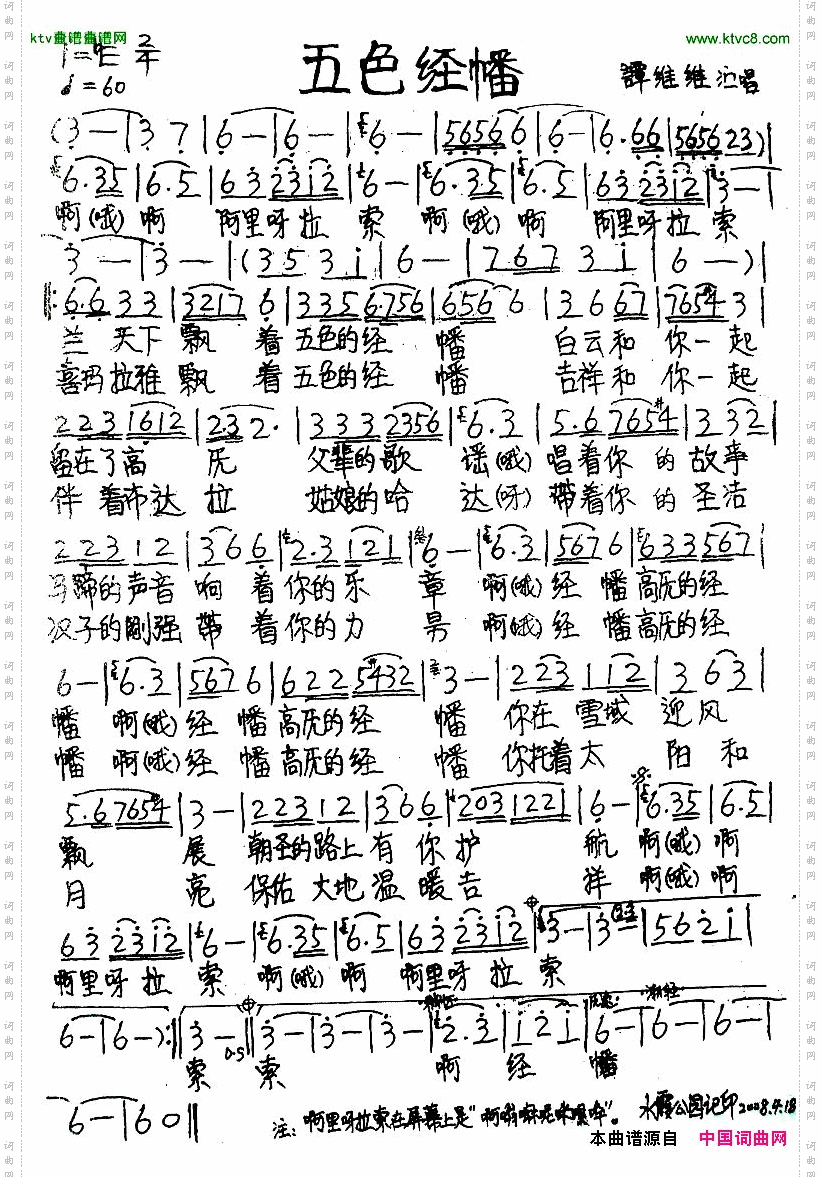 ktv曲谱曲谱网
www.ktvc8.com
1=♭E 2/4
♩=60
五色经幡
譚维维 演唱
(3 — | 3 7 | 6 — | 6 — | 6 — | 5656 6 | 6 — | 6·66 | 5656 23) |
6·35 | 6·5 | 63 2312 | 6 — | 6·35 | 6·5 | 63 2312 | 3 — |
啊(哦)啊 阿里呀拉 索 啊(哦)啊 阿里呀拉 索
3 — | 3 — | (353 i | 6 — | 767 3 i | 6 —) |
6·6 33 | 3217 6 | 335 6·756 | 656 6 | 3 6 67 | 7654 3 |
兰天下飘 着五色的经 幡 白云和 你一起
喜玛拉雅飘 着五色的经 幡 吉祥和 你一起
223 1612 | 232· | 333 2356 | 6·3 | 5·6 7654 | 3 32 |
留在了高 厡 父辈的歌 谣(哦) 唱着你 的 故事
伴着布达 拉 姑娘的哈 达(呀) 带着你 的 圣洁
223 12 | 366 | 2·3 121 | 6 — | 6·3 | 567 6 | 633567 |
马蹄的声音 响 着你的乐 章 啊(哦)经 幡高厡的经
汉子的剛强 带 着你的力 啊(哦)经 幡高厡的经
6 — | 6·3 | 567 6 | 622 5432 | 3 — | 223 112 | 3 63 |
幡 啊(哦)经 幡高厡的经 幡 你在 雪域 迎风
幡 啊(哦)经 幡高厡的经 幡 你托着太 阳和
5·6 7654 | 3 — | 223 12 | 366 | 203 122 | 6 — | 6·35 | 6·5 |
飘 展 朝圣的路上有 你护 航 啊(哦)啊
月 亮 保佑大地温 暖吉 祥 啊(哦)啊
63 2312 | 6 — | 6·35 | 6·5 | 63 2312 | 3 — | 3 23 | 562 i |
啊里呀 拉 索 啊(哦)啊 啊里呀拉 索
6 — | 6 — ) :‖ 3 — ‖ 3 — | 3 — | 3 — | 2·3 | i 2 i | 6 — | 6 — | 6 — |
D.S
索 索 啊 经 幡
6 — | 6 0 ‖
注:啊里呀拉索在屏幕上是“啊嗡嘛呢呗嘿吽”。
水霞公园记印2008.4.18
本曲谱源自 中国词曲网
词曲网